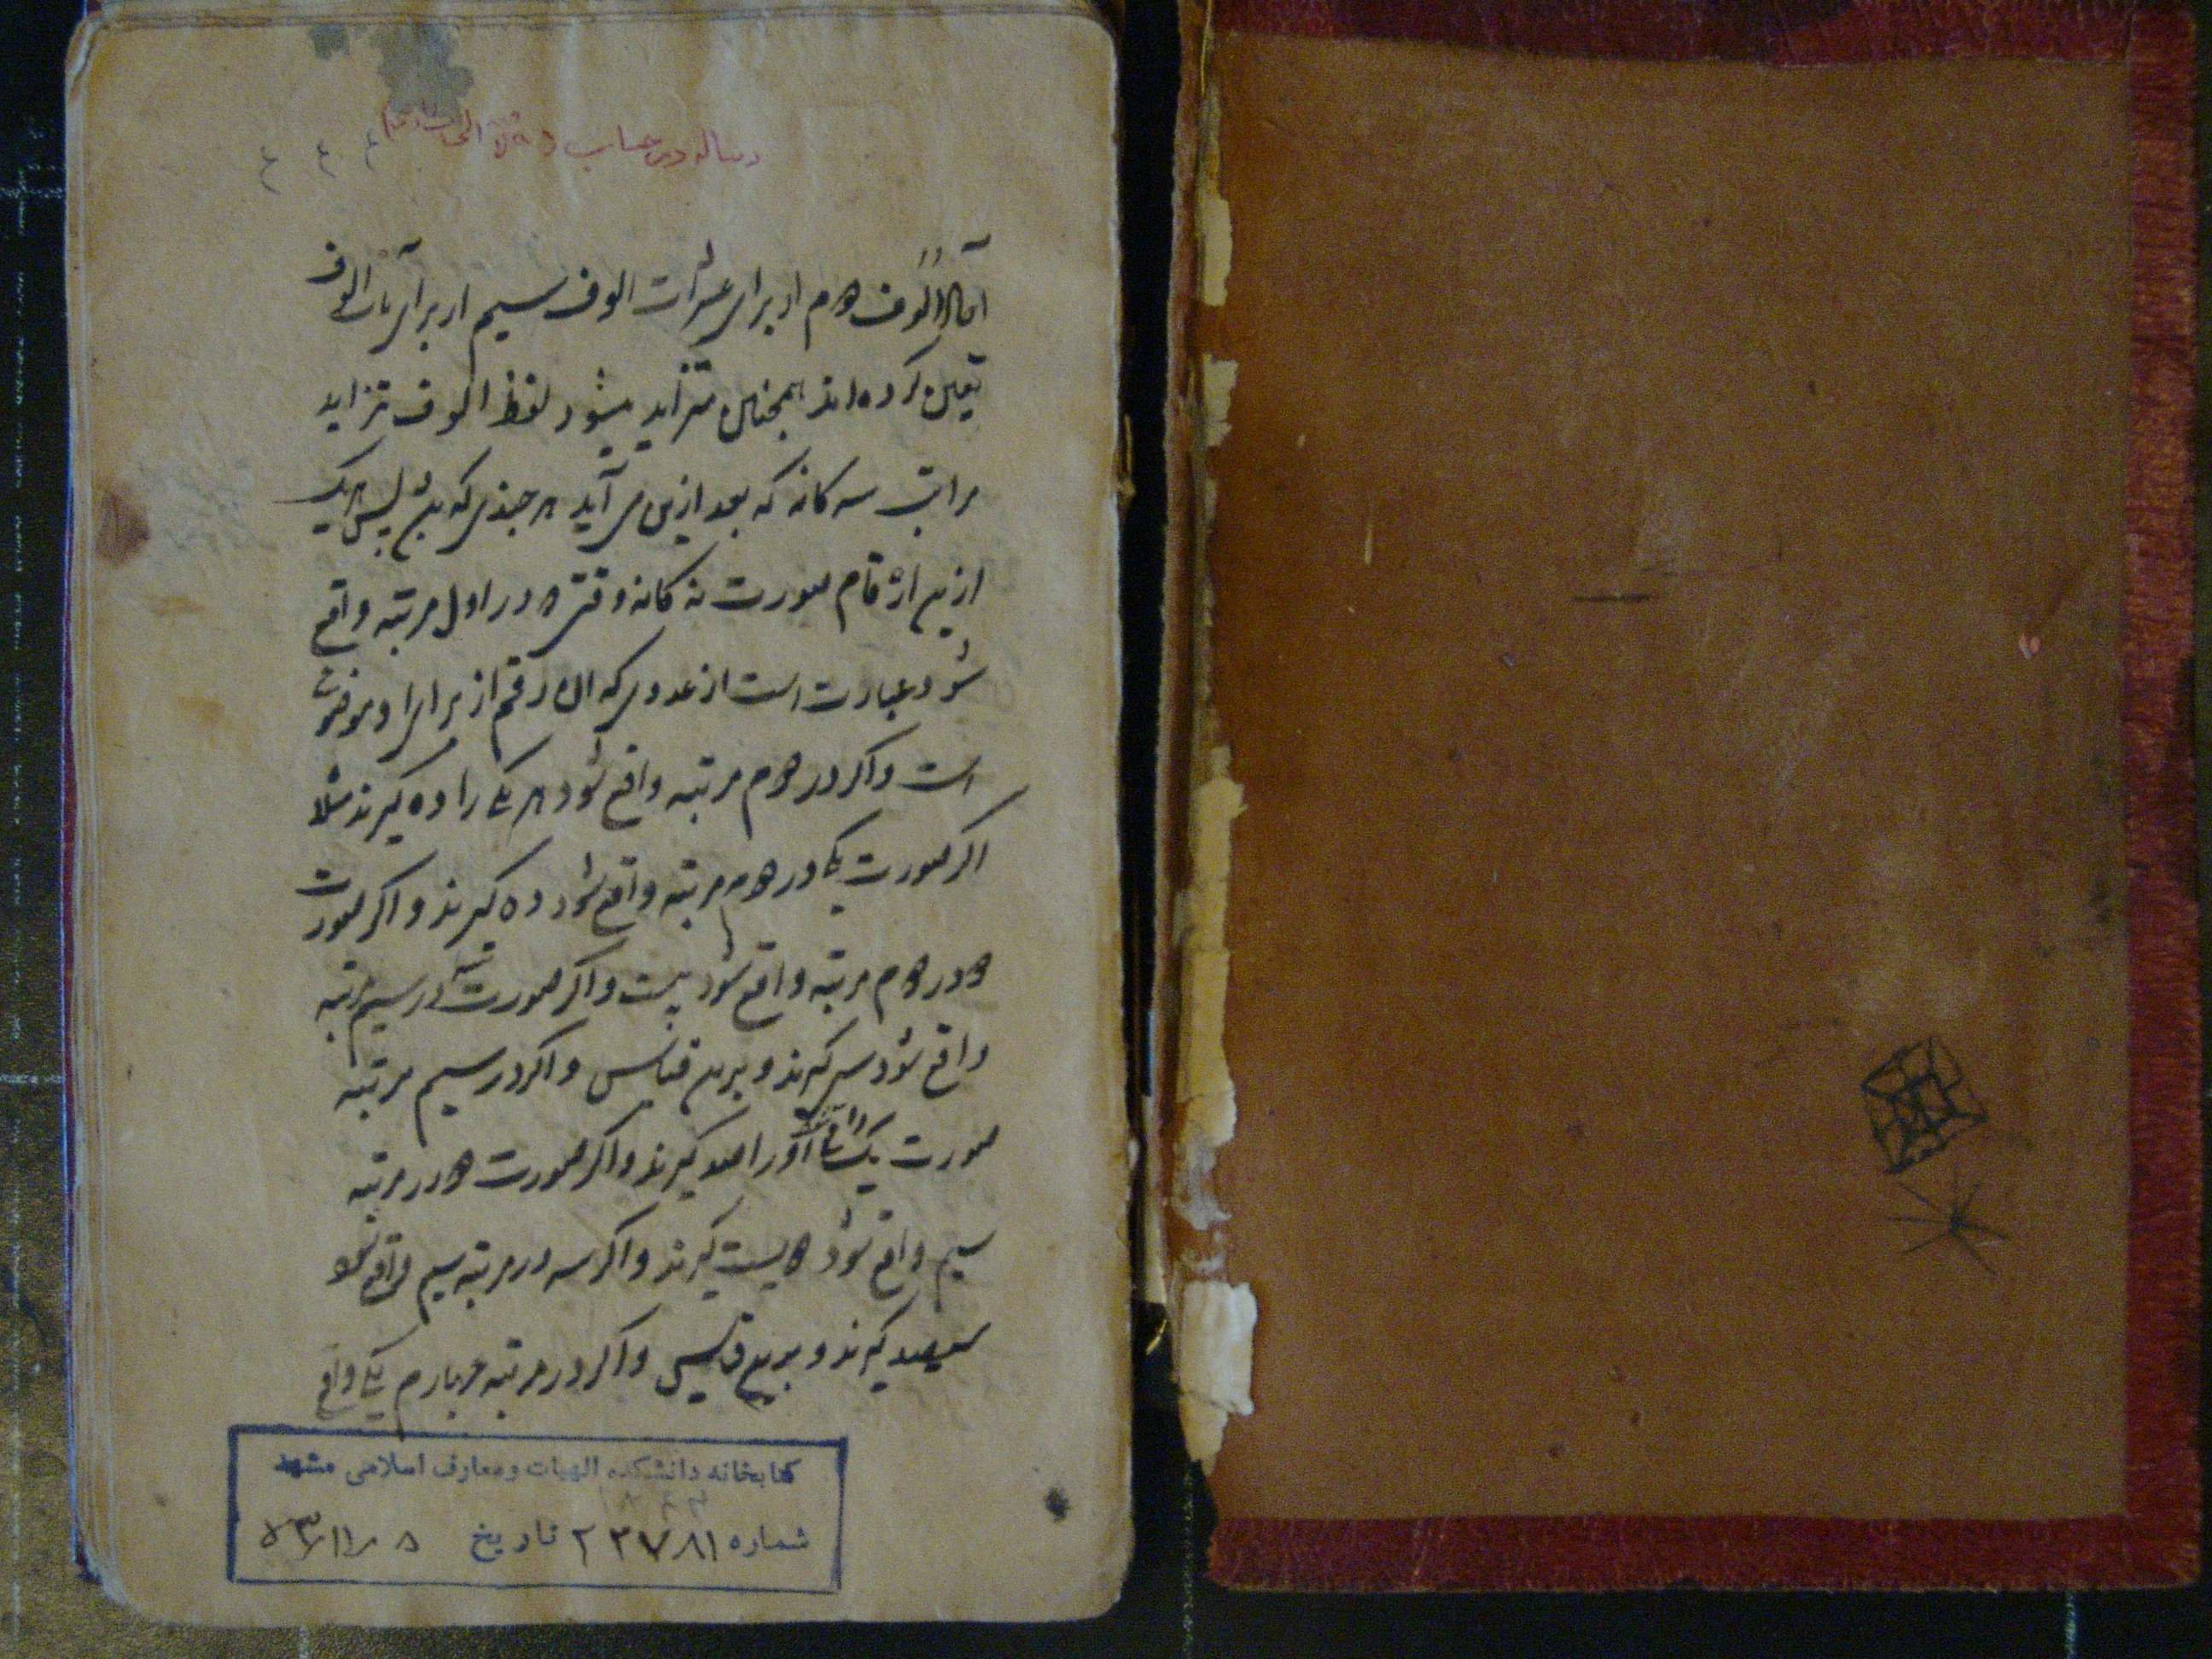 رساله در حساب
آحاد الوف دوم از برای عشرات الوف سیم از برای مآت الوف
تعین کرده اند همچنین متزاید میشود لفظ الوف بتزاید
مراتب سه کانه که بعد ازین می آید هر چندی که هر یک
ازین ارقام صورت نه کانه وقتی که در اول مرتبه واقع
شود عبارت است از عددی که آن رقم از برای او موضوع
است و اکر در دوم مرتبه واقع شود هر یکی را ده کیرند مثلا
اکر صورت یکی در دوم مرتبه واقع شود ده کیرند و اکر صورت
دو در دوم مرتبه واقع شود بیست و اکر صورت سه در سیم مرتبه
واقع شود سی کیرند و برین قیاس و اکر در سیم مرتبه
صورت یک او را صد کیرند و اکر صورت دو در مرتبه
سیم واقع شود دویست کیرند و اکر سه در مرتبه سیم واقع شود
سیصد کیرند و برین قیاس و اکر در مرتبه چهارم یکی واقع
کتابخانه دانشکده الهیات و معارف اسلامی مشهد
شماره ۲۲۷۸۱ تاریخ ۵۳/۱۱/۵